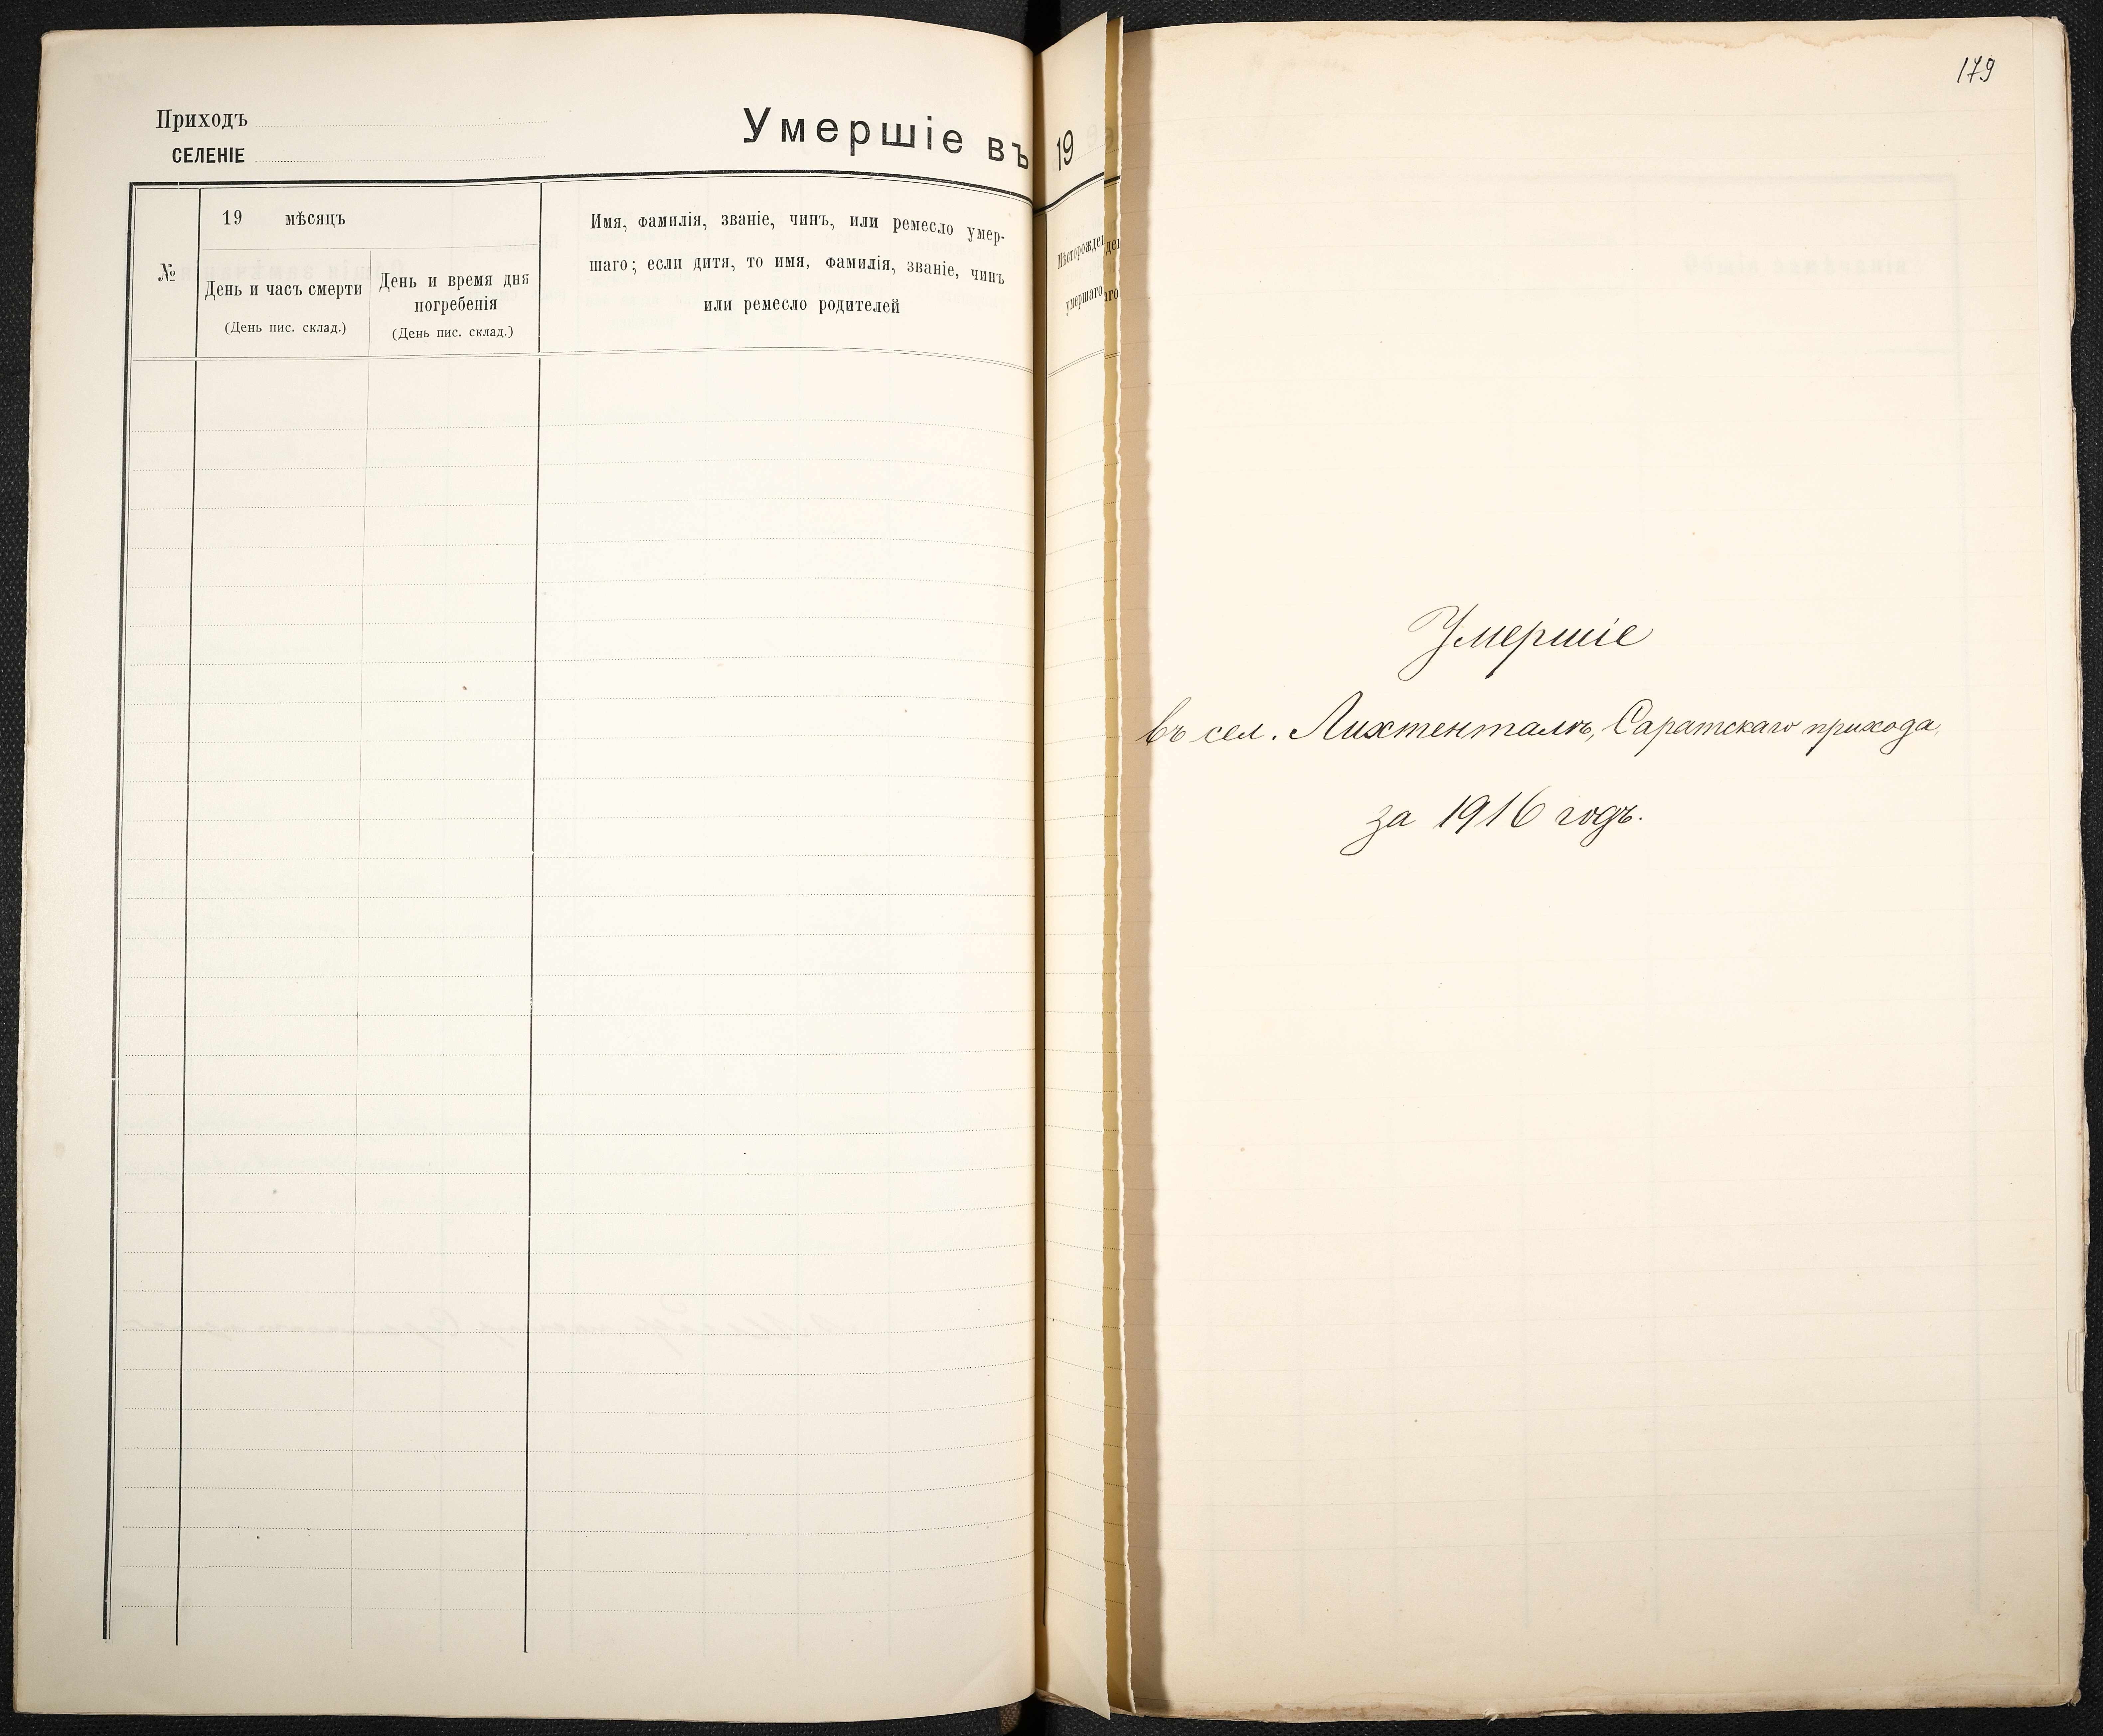 Приходъ
СЕЛЕНІЕ
Умершіе въ 19
№
19 мѣсяцъ
День и часъ смерти
(День пис. склад.)
День и время дня
погребенія
(День пис. склад.)
Имя, фамилія, званіе, чинъ, или ремесло умер-
шаго; если дитя, то имя, фамилія, званіе, чинъ
или ремесло родителей
Мѣсторожден
умершаго
179
Умершіе
въ сел. Лихтенталѣ, Саратскаго прихода,
за 1916 годъ.